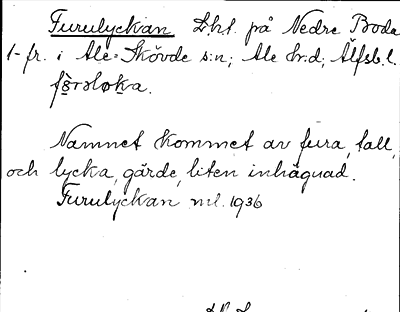 Furulyckan Lht. på Nedre Boda
1-fr. i Ale-Skövde s:n; Ale hd; Älfsb. l.

Namnet kommet av fura, tall,
och lycka, gärde, liten inhägnad.
Furulyckan ml. 1936